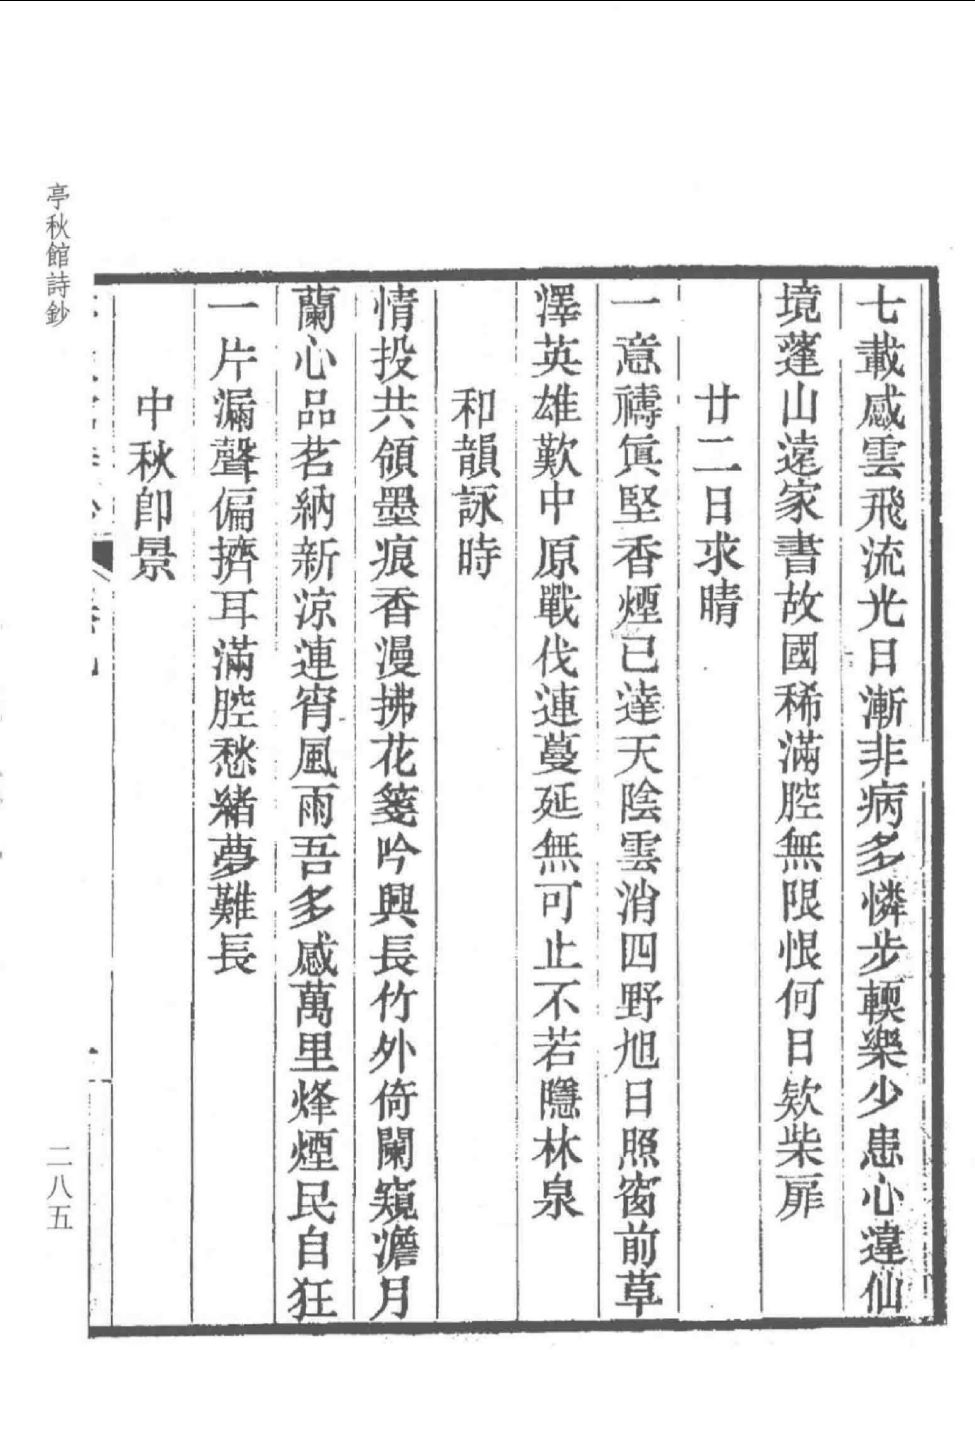 七載感雲飛流光日漸非病多憐步輭樂少患心違仙
境蓬山遠家書故國稀滿腔無限恨何日欵柴扉
廿二日求晴
一意禱眞堅香煙已達天陰雲消四野旭日照窗前草
澤英雄歎中原戰伐連蔓延無可止不若隱林泉
和韻詠時
情投共領墨痕香漫拂花箋吟興長竹外倚闌窺澹月
蘭心品茗納新涼連宵風雨吾多感萬里烽煙民自狂
一片漏聲偏擠耳滿腔愁緒夢難長
中秋卽景
亭秋館詩鈔
二八五